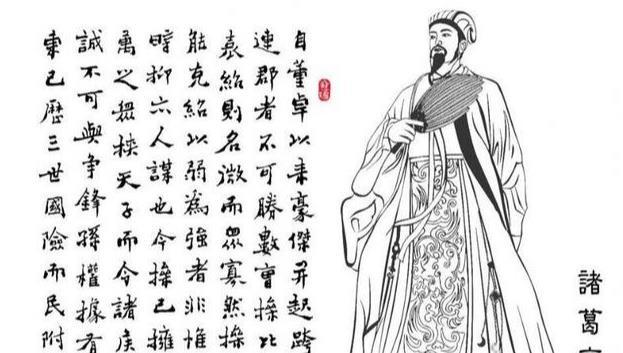 自董卓以来豪傑并起跨
連郡者不可勝數曹操比
袁紹則名微而眾寡然操
能克紹以弱為強者非惟
時抑亦人謀也今操已擁
萬之眾挾天子而令諸侯
誠不可與争鋒孫權據有
東已歷三世國險而民附
諸葛